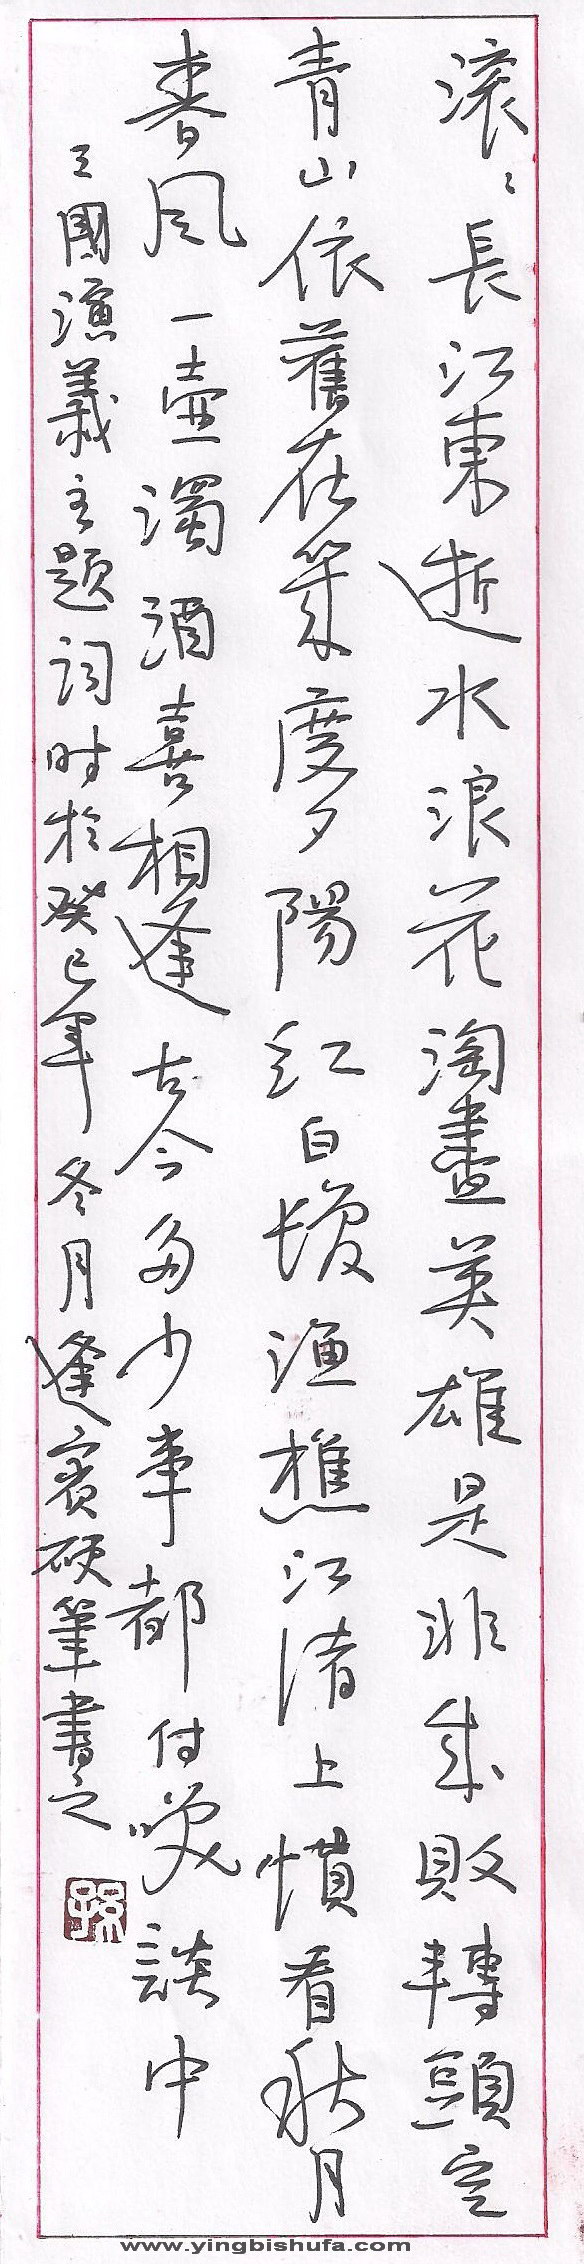 滚〻長江東逝水浪花淘盡英雄是非成敗轉頭空
青山依舊在笑度夕陽紅白髮渔樵江渚上慣看秋月
春風一壺濁酒喜相逢古今多少事都付笑談中
三國演義主題词时於癸巳年冬月逢賓硬筆書之
孫
www.yingbishufa.com